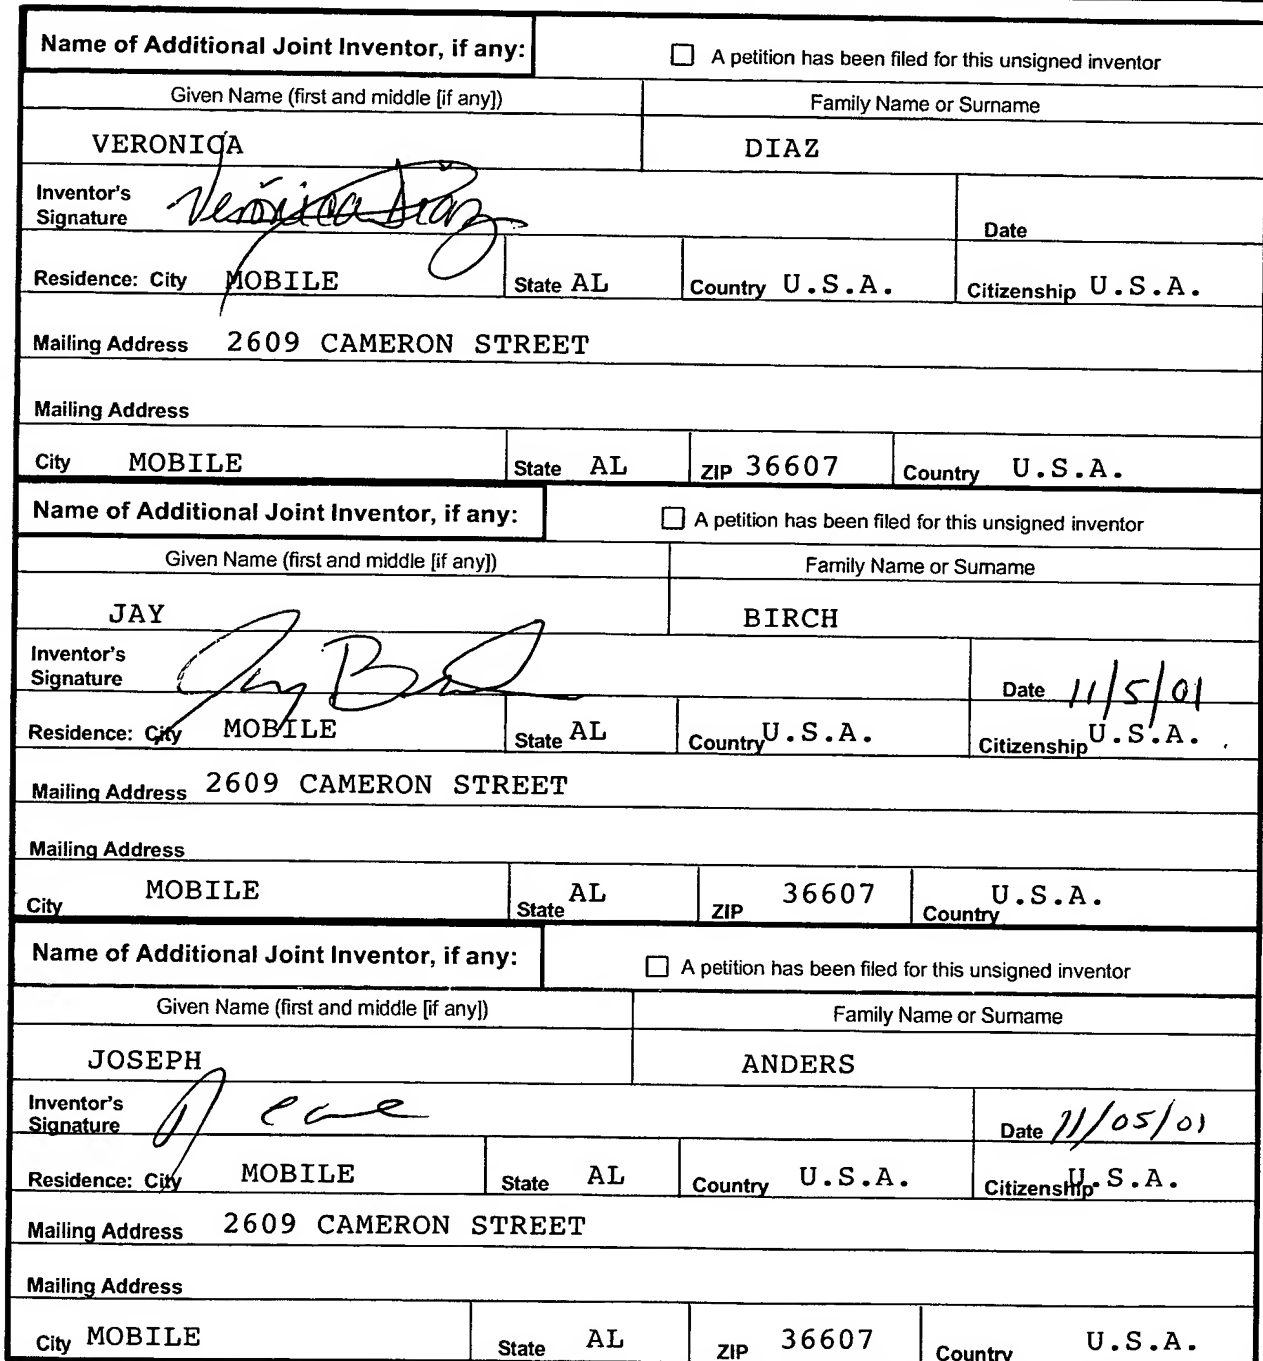 Name of Additional Joint Inventor, if any: A petition has been filed for this unsigned inventor
Given Name (first and middle [if any]) Family Name or Surname
VERONICA DIAZ
Inventor's Signature Verónica Díaz Date
Residence: City MOBILE State AL Country U.S.A. Citizenship U.S.A.
Mailing Address 2609 CAMERON STREET
Mailing Address
City MOBILE State AL ZIP 36607 Country U.S.A.
Name of Additional Joint Inventor, if any: A petition has been filed for this unsigned inventor
Given Name (first and middle [if any]) Family Name or Surname
JAY BIRCH
Inventor's Signature Jay Date 11/5/01
Residence: City MOBILE State AL Country U.S.A. Citizenship U.S.A.
Mailing Address 2609 CAMERON STREET
Mailing Address
City MOBILE State AL ZIP 36607 Country U.S.A.
Name of Additional Joint Inventor, if any: A petition has been filed for this unsigned inventor
Given Name (first and middle [if any]) Family Name or Surname
JOSEPH ANDERS
Inventor's Signature Date 11/05/01
Residence: City MOBILE State AL Country U.S.A. Citizenship U.S.A.
Mailing Address 2609 CAMERON STREET
Mailing Address
City MOBILE State AL ZIP 36607 Country U.S.A.